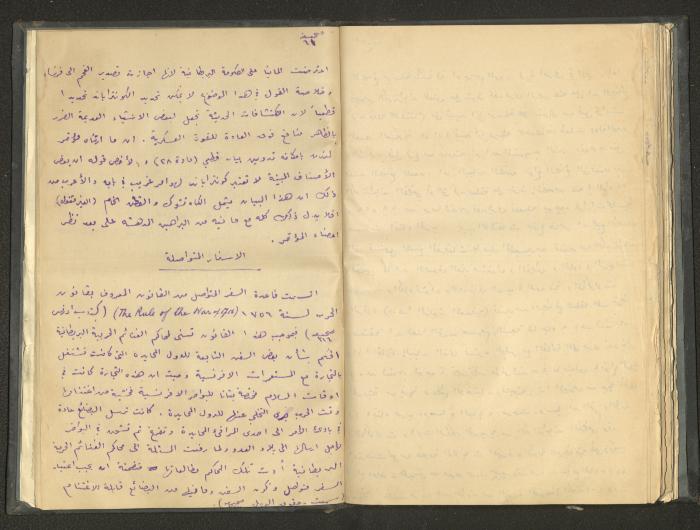 صحيفة
٦٦
اعترضت المانيا على الحكومة البريطانية لانها اجازت تصدير الفحم الى فرنسا
وخلاصة القول في هذا الموضوع لا يمكن تحديد الكونتراباند تحديدا
قطعياً لان الاكتشافات الحديثة تجعل لبعض الاشياء العديمة الضرر
بالظاهر منافع فوق العادة للقوة العسكرية. ان ما ارتآه مؤتمر
لندن بامكانه تدوين بيان قطعي (مادة ٢٨) والأخص قوله ان بعض
الأصناف المبينة لا تعتبر كونتراباند لهو أمر غريب في بابه والأغرب من
ذلك ان هذا البيان يشمل الكاوتشوك والقطن الخام (الغير مغزول)
افلا يدل ذلك كله مع ما فيه من البراهين الدهشة على بعد نظر
اعضاء المؤتمر.
الاسفار المتواصلة
اتسعت قاعدة السفر المتواصل من القانون المعروف بقانون
الحرب لسنة ١٧٥٦ (The Rule of the War of 1756) (كتاب
صحيفة) فبموجب هذا القانون تسنى لمحاكم الغنائم الحربية البريطانية
الحكم بشأن بعض السفن التابعة للدول المحايدة التي كانت تشتغل
بالتجارة مع المستعمرات الافرنسية وحيث ان هذه التجارة كانت في
اوقات السلام مختصة بتاتا للبواخر الافرنسية فخشية من اغتنامها
وقت الحرب جرى التخلي عنها للدول المحايدة. كانت ترسل البضائع عادة
في بادئ الأمر الى احدى المرافئ المحايدة وتفرغ ثم تشحن في البواخر
لأجل ارسالها الى بلاد العدو ولما رفعت المسئلة الى محاكم الغنائم الحربية
البريطانية أدت تلك المحاكم مطالعاتها متضمنة انه يجب اعتبار
السفر متواصل وتكون السفن وما فيها من البضائع قابلة الاغتنام